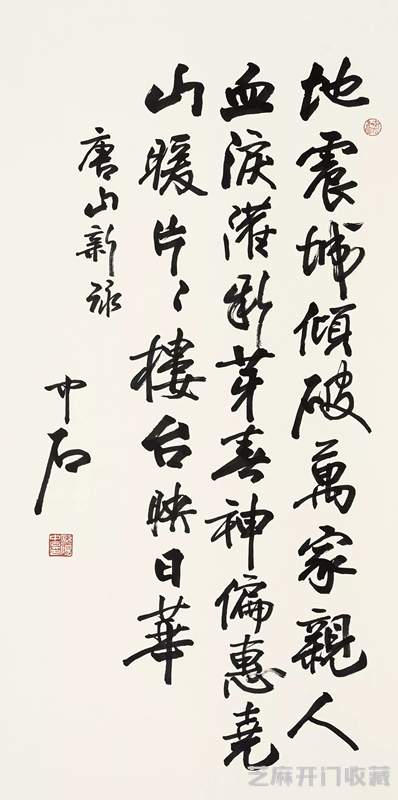 地震城傾破萬家親人
血淚灌新芽春神偏惠堯
山暖片〻樓台映日華
唐山新詠
中石
芝麻开门收藏